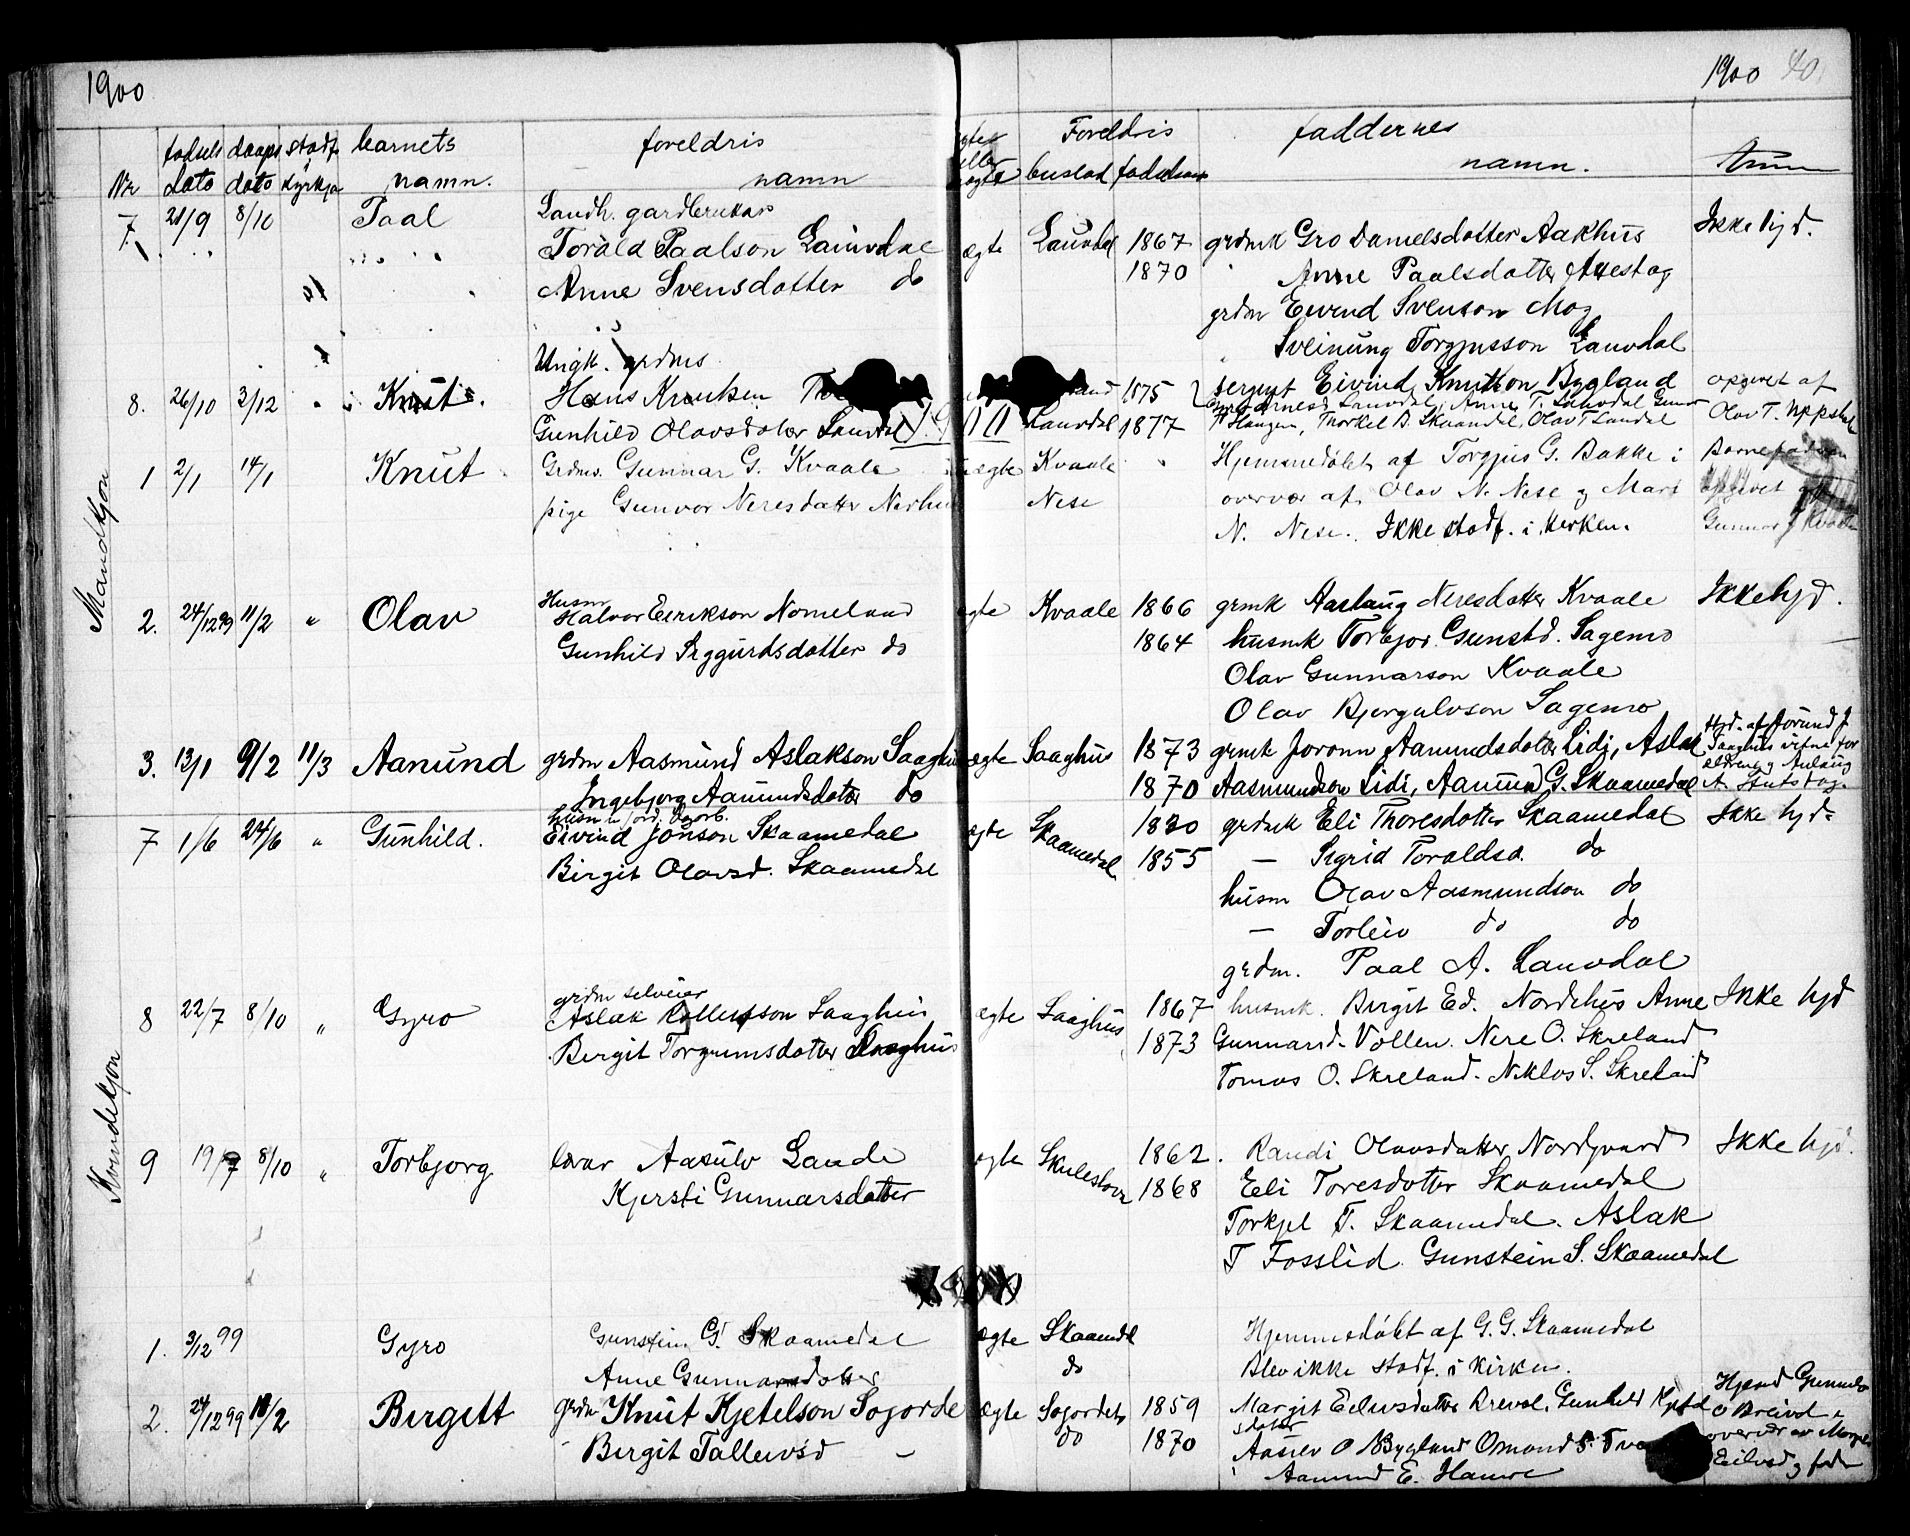 1900
1900 40
fødsels daaps stadf. barnets foreldris ægte Foreldris faddernes
Nr dato dato kyrkja namn. namn eller uægte bustad fødselsaar namn. Anm
7. 21/9 8/10 Paal Landh. gardbrukar
Torald Paalson Lauvdal ægte Lauvdal 1867 grdmk Gro Danielsdotter Aakhus Ikke hjd.
Anne Svensdotter do 1870 Anne Paalsdatter
grdm Eivind Svenson Mog
Sveinung Torgjusson Lauvdal
Ungk. grdms.
8. 26/10 3/12 " Knut. Hans Knutsen 1875 sergnt Eivind Knutson Bygland opgivet af
Gunhild Olavsdater Lauvdal Lauvdal 1877 Haugen, Thorkel B. Skaamdal, Olav T Lauvdal Olav T. Uppstad
Mandkjøn
1 2/1 14/1 Knut Grdms. Gunnar G. Kvaale uægte Kvaale Hjemmedøbt af Torgjus G. Bakke i Barnefaderen
pige Gunvor Neresdatter Nese overvær af Olav N. Nese og Mari opgivet
N. Nese. Ikke stadf. i kerken. Gunnar G Kvaale
2. 24/12 99 11/2 " Olav Husm
Halvor Eirikson Nomeland ægte Kvaale 1866 grmk Aaslaug Neresdatter Kvaale Ikke hjd.
Gunhild Siggurdsdotter do 1864 husmk Torbjør Gunstd. Sagemo
Olav Gunnarson Kvaale
Olav Bjorgulvson Sagemo
3. 13/1 9/2 11/3 Aanund grdm Aasmund Aslakson Saaghus ægte Saaghus 1873 grmk Joronn Aamundsdotter Lidi, Aslak
Ingebjorg Aanundsdatter do 1870 Aasmundson Lidi, Aanund G. Skaamedal
Kvindekjøn
7 1/6 24/6 " Gunhild. Eivind Jonson Skaamedal ægte Skaamedal 1820 grdmk Eli Thoresdotter Skaamedal Ikke hjd.
Birgit Olavsd. Skaamedal 1855 — Sigrid Toraldsd. do
husm Olav Aasmundson do
— Torleiv do do
grdm. Paal A. Lauvdal
8 22/7 8/10 " Gyro grdm selveier
Aslak Saaghus ægte Saaghus 1867 husmk. Birgit Ed. Nordehus Anne Ikke hjd
Birgit Torgrimsdotter Saaghus 1873 Gunnarsd. Vollen. Nere O. Skreland
Tomas O. Skreland. Niklos S. Skreland
9 19/7 8/10 " Torbjorg lærar Aasulv Lande ægte Skulestova 1862. Randi Olavsdatter Nordgaard Ikke hjd.
Kjersti Gunnarsdatter 1868 Eeli Toresdotter Skaamedal
Torkjel T. Skaamedal. Aslak
T Fosslid. Gunstein S. Skaamedal
1. 3/12 99 Gyro Gunstein G. Skaamedal ægte Skaamdl Hjemmedøbt af G. G. Skaamedal
Anne Gunnarsdotter do Blev ikke stadf. i kirken.
2. 24/12 99 18/2 Birgitt grdm Knut Kjetelson Sogorde ægte Sogordet 1859 Margit Hjemd
Birgit Tallevsd — do 1870 Aaslev O Bygland Osmond
Aamund E. Hanse